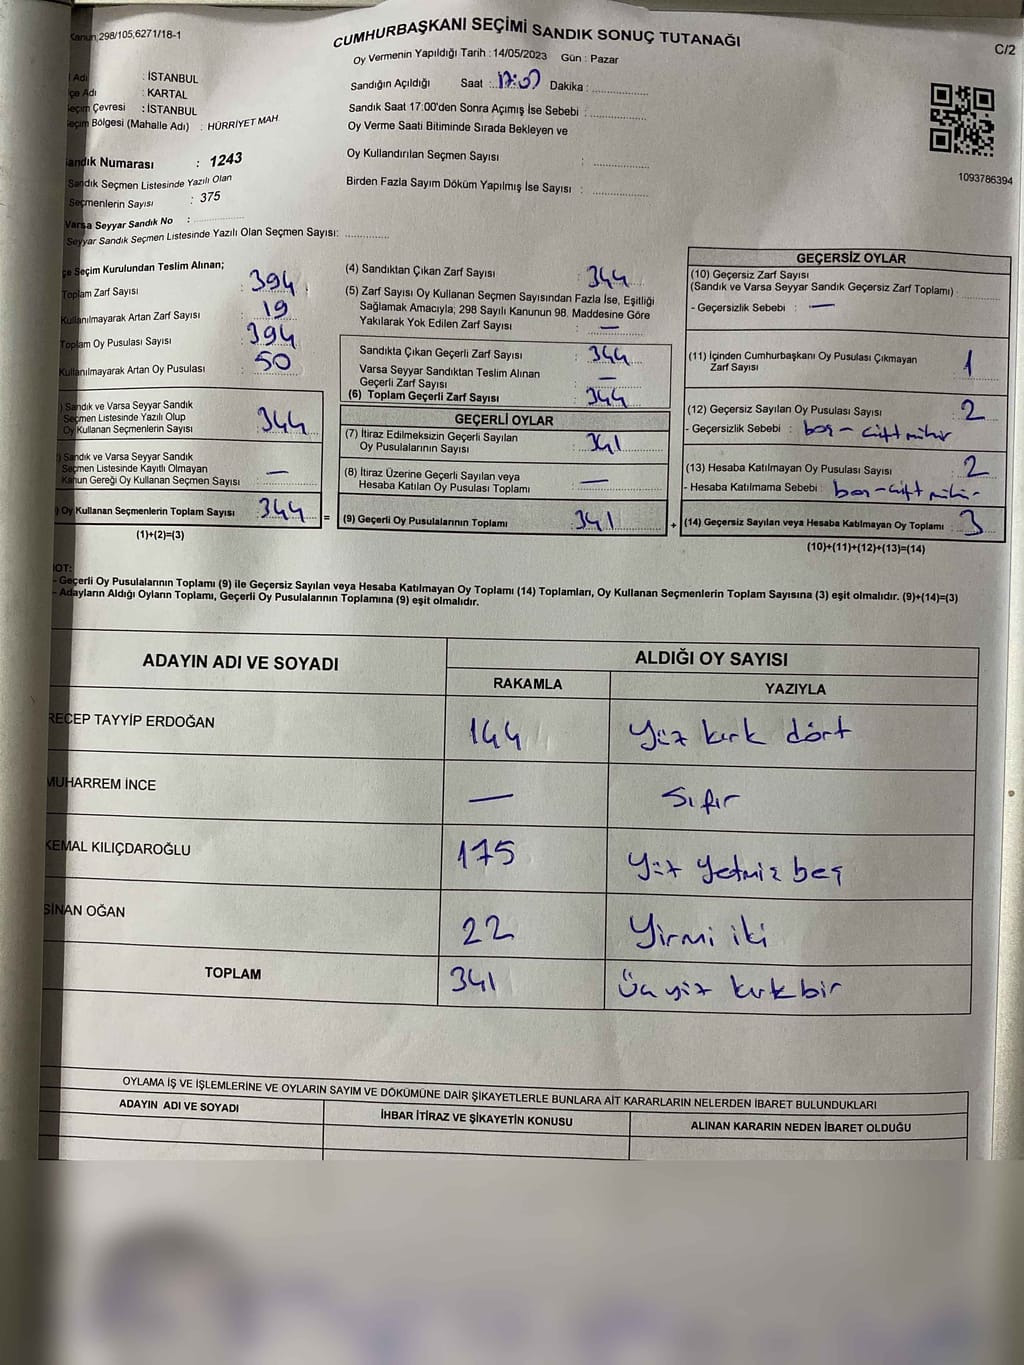 Kanun,298/105,6271/18-1
CUMHURBAŞKANI SEÇİMİ SANDIK SONUÇ TUTANAĞI
C/2
Oy Vermenin Yapıldığı Tarih : 14/05/2023 Gün : Pazar
Adı : İSTANBUL
çe Adı : KARTAL
Seçim Çevresi : İSTANBUL
Seçim Bölgesi (Mahalle Adı) : HÜRRİYET MAH.
Sandığın Açıldığı Saat : 17:07 Dakika :
Sandık Saat 17:00'den Sonra Açımış İse Sebebi :
Oy Verme Saati Bitiminde Sırada Bekleyen ve
Oy Kullandırılan Seçmen Sayısı :
Birden Fazla Sayım Döküm Yapılmış İse Sayısı :
1093786394
Sandık Numarası : 1243
Sandık Seçmen Listesinde Yazılı Olan
Seçmenlerin Sayısı : 375
Varsa Seyyar Sandık No :
Seyyar Sandık Seçmen Listesinde Yazılı Olan Seçmen Sayısı:
çe Seçim Kurulundan Teslim Alınan;
Toplam Zarf Sayısı : 394
Kullanılmayarak Artan Zarf Sayısı : 19
Toplam Oy Pusulası Sayısı : 394
Kullanılmayarak Artan Oy Pusulası : 50
) Sandık ve Varsa Seyyar Sandık
Seçmen Listesinde Yazılı Olup
Oy Kullanan Seçmenlerin Sayısı : 344
) Sandık ve Varsa Seyyar Sandık
Seçmen Listesinde Kayıtlı Olmayan
Kanun Gereği Oy Kullanan Seçmen Sayısı : —
) Oy Kullanan Seçmenlerin Toplam Sayısı : 344 =
(1)+(2)=(3)
(4) Sandıktan Çıkan Zarf Sayısı : 344
(5) Zarf Sayısı Oy Kullanan Seçmen Sayısından Fazla İse, Eşitliği
Sağlamak Amacıyla; 298 Sayılı Kanunun 98. Maddesine Göre
Yakılarak Yok Edilen Zarf Sayısı : —
Sandıkta Çıkan Geçerli Zarf Sayısı : 344
Varsa Seyyar Sandıktan Teslim Alınan
Geçerli Zarf Sayısı : —
(6) Toplam Geçerli Zarf Sayısı : 344
GEÇERLİ OYLAR
(7) İtiraz Edilmeksizin Geçerli Sayılan
Oy Pusulalarının Sayısı : 341
(8) İtiraz Üzerine Geçerli Sayılan veya
Hesaba Katılan Oy Pusulası Toplamı : —
(9) Geçerli Oy Pusulalarının Toplamı : 341 +
GEÇERSİZ OYLAR
(10) Geçersiz Zarf Sayısı
(Sandık ve Varsa Seyyar Sandık Geçersiz Zarf Toplamı) :
- Geçersizlik Sebebi : —
(11) İçinden Cumhurbaşkanı Oy Pusulası Çıkmayan
Zarf Sayısı : 1
(12) Geçersiz Sayılan Oy Pusulası Sayısı : 2
- Geçersizlik Sebebi : boş - Çift mühür
(13) Hesaba Katılmayan Oy Pusulası Sayısı : 2
- Hesaba Katılmama Sebebi : boş - çift mühür
(14) Geçersiz Sayılan veya Hesaba Katılmayan Oy Toplamı : 3
(10)+(11)+(12)+(13)=(14)
NOT:
- Geçerli Oy Pusulalarının Toplamı (9) ile Geçersiz Sayılan veya Hesaba Katılmayan Oy Toplamı (14) Toplamları, Oy Kullanan Seçmenlerin Toplam Sayısına (3) eşit olmalıdır. (9)+(14)=(3)
- Adayların Aldığı Oyların Toplamı, Geçerli Oy Pusulalarının Toplamına (9) eşit olmalıdır.
ADAYIN ADI VE SOYADI ALDIĞI OY SAYISI
RAKAMLA YAZIYLA
RECEP TAYYİP ERDOĞAN 144 Yüz kırk dört
MUHARREM İNCE — Sıfır
KEMAL KILIÇDAROĞLU 175 Yüz Yetmiş beş
SİNAN OĞAN 22 Yirmi iki
TOPLAM 341 Üç yüz kırk bir
OYLAMA İŞ VE İŞLEMLERİNE VE OYLARIN SAYIM VE DÖKÜMÜNE DAİR ŞİKAYETLERLE BUNLARA AİT KARARLARIN NELERDEN İBARET BULUNDUKLARI
ADAYIN ADI VE SOYADI İHBAR İTİRAZ VE ŞİKAYETİN KONUSU ALINAN KARARIN NEDEN İBARET OLDUĞU